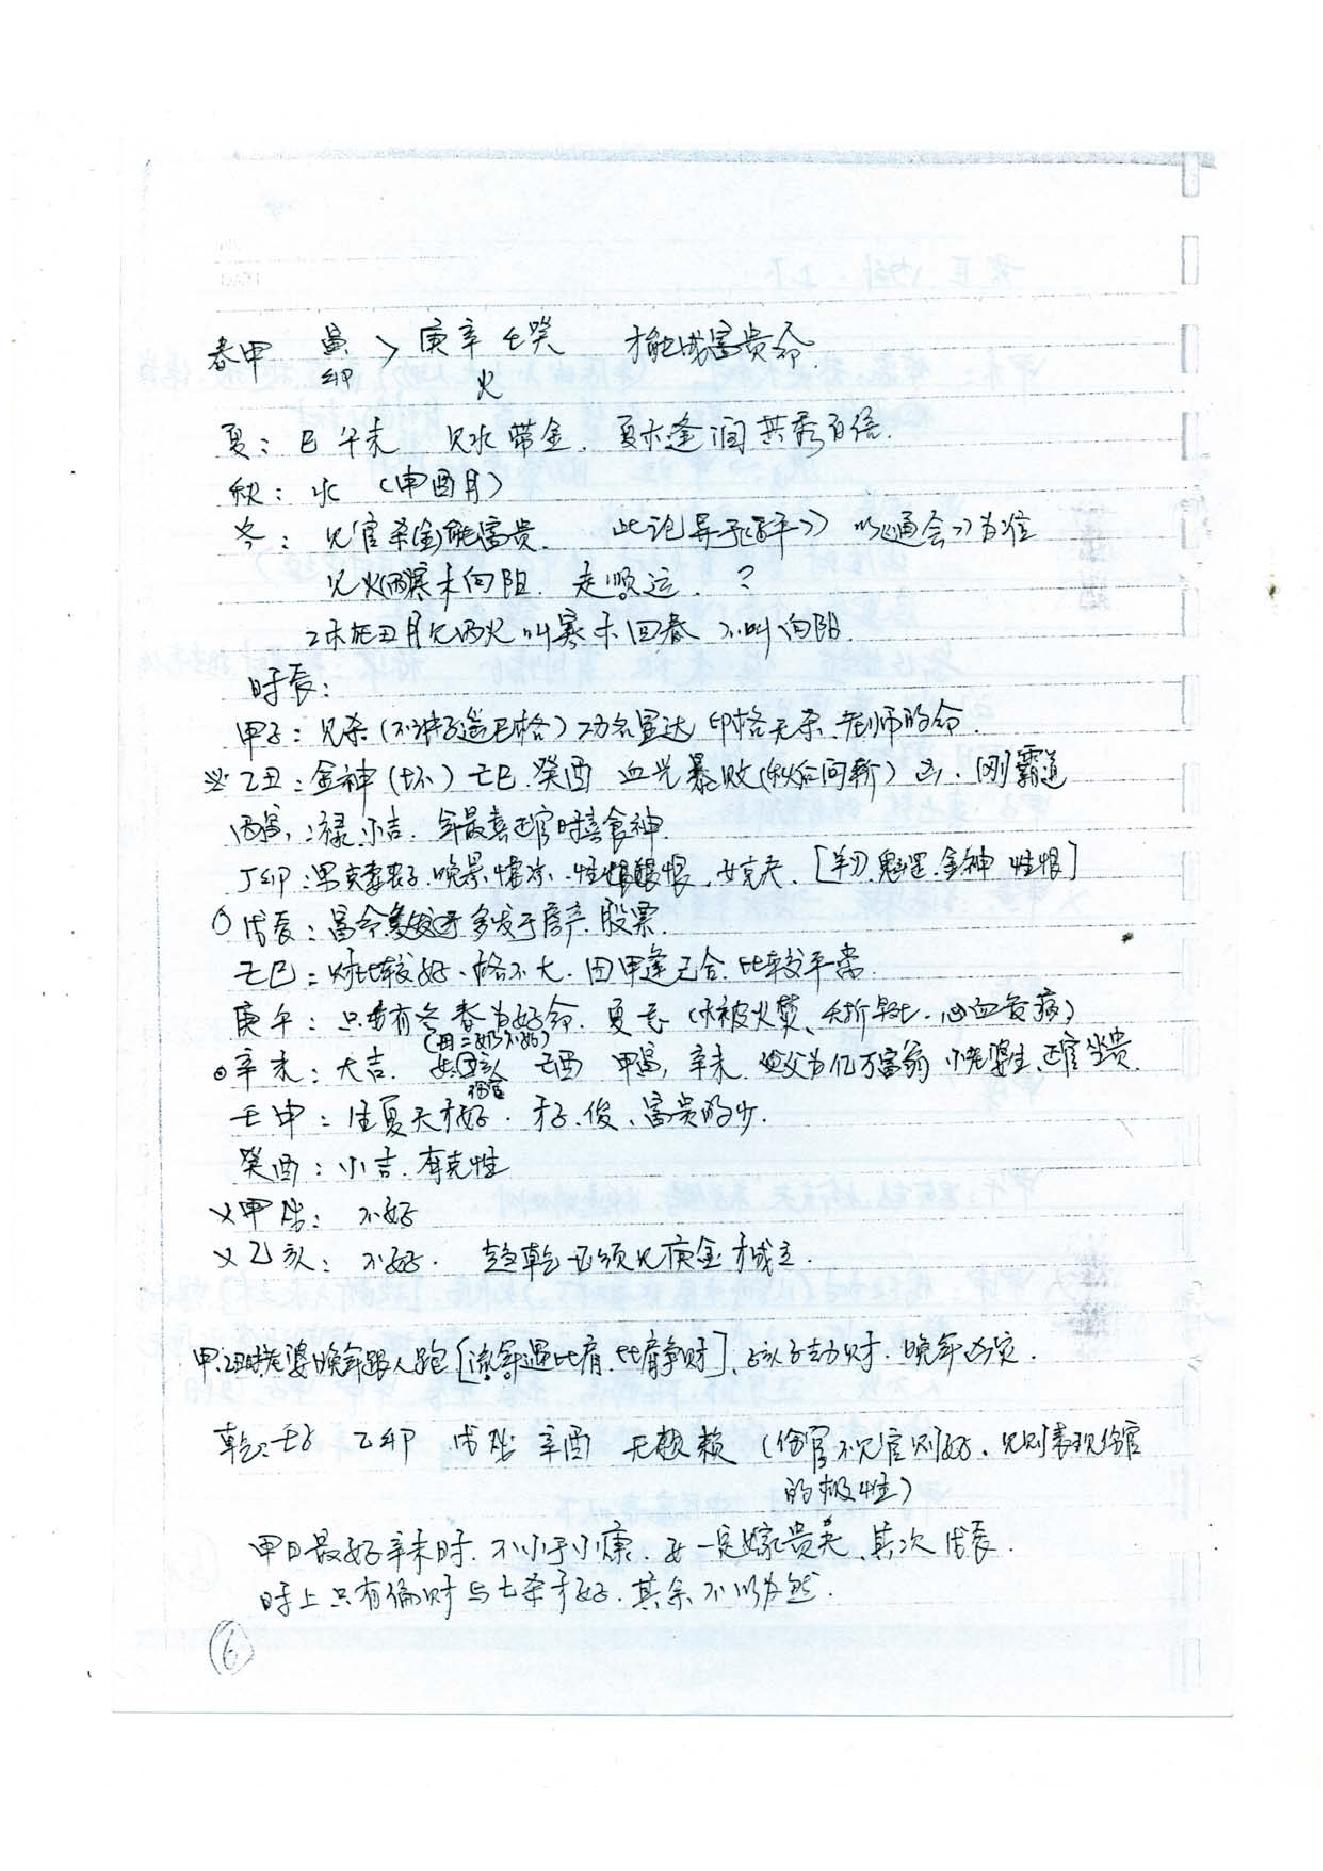 春甲 寅卯 > 庚辛 壬癸 火 才能成富贵命.
夏: 巳午未 见水带金. 夏木逢润其秀百倍.
秋: 水 (申酉月)
冬: 见官杀(金)能富贵. 此论异于 >> 以<<通会>>为准
见火(丙)寒木向阳 走顺运. ?
乙木在丑月见丙火叫寒木回春 不叫向阳.
时辰:
甲子: 见杀(不讲子遥巳格)功名显达 印格无杀.老师的命.
※乙丑: 金神(坏) 己巳.癸酉 血光暴败(秋后问斩) 凶. 刚霸道
丙寅: 禄.小吉. 年最喜正官时喜食神.
丁卯: 男克妻.晚景凄凉. 女克夫. [羊刃.魁罡.金神 性恨]
戊辰: 富命 多发于房产.股票.
己巳: 对比较好.格不大. 因甲逢己合.比较平常.
庚午: 只有冬春为好命. 夏忌 (木被火焚、夭折. 心血负病)
⊙辛未: 大吉. 甲寅, 辛未. 父为亿万富翁 小老婆生.正官坐贵.
壬申: 生夏天才好. 才子.俊、富贵的少.
癸酉: 小吉.有克性
×甲戌: 不好
×乙亥: 不好. 趋乾 必须见庚金才成立.
老婆晚年跟人跑[流年遇比肩.比肩争财] 劫财. 晚年凶灾.
乾: 壬子 乙卯 戊戌 辛酉 无赖 (伤官不见官则好. 见则表现伤官
的极性)
甲日最好辛未时. 不小于小康. 女一定嫁贵夫. 其次戊辰.
时上只有偏财与七杀才好. 其余不以为然.
⑥